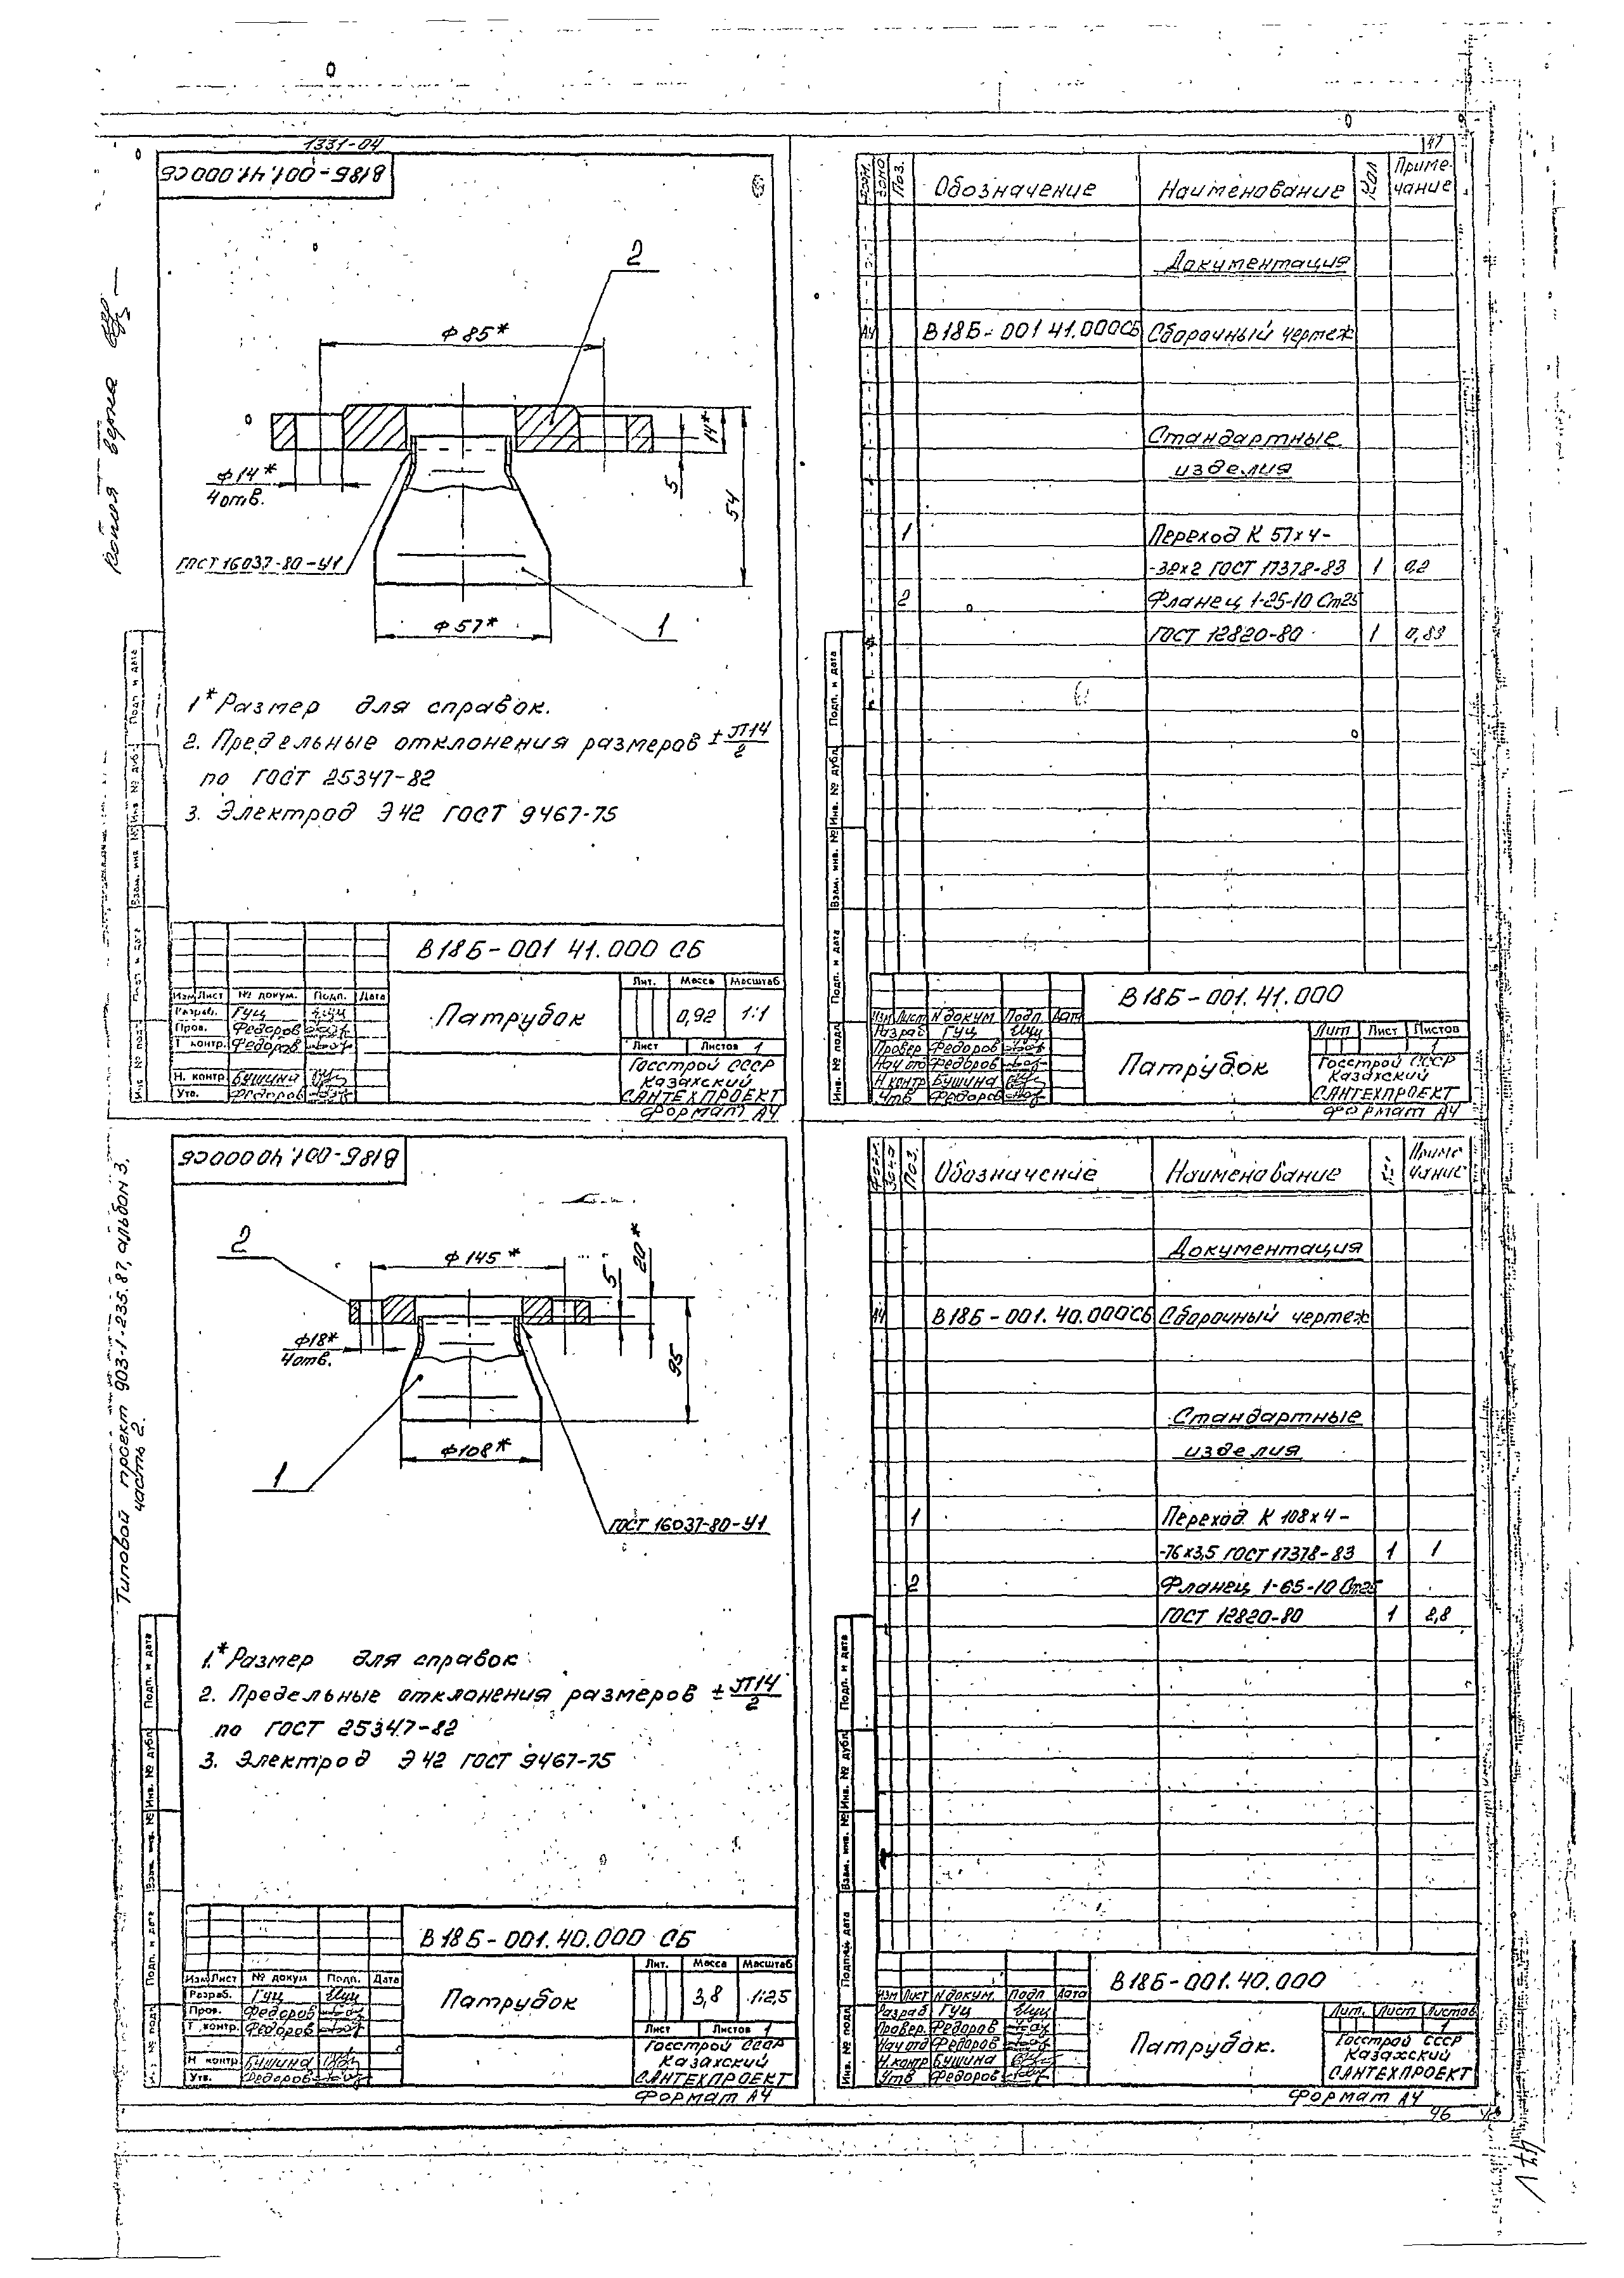 1331-04
В18Б-001.41.000СБ
2
Ф 85*
14*
5
54
Ф14*
4 отв.
ГОСТ 16037-80-У1
Ф 57*
1
1* Размер для справок.
2. Предельные отклонения размеров ± JT14/2
по ГОСТ 25347-82
3. Электрод Э42 ГОСТ 9467-75
В18Б-001 41.000 СБ
Патрубок
Лит. Масса Масштаб
0,92 1:1
Лист Листов 1
Изм Лист № докум. Подп. Дата
Разраб. Гуц
Пров. Федоров
Т контр. Федоров
Н. контр Бушина
Утв. Федоров
Госстрой СССР
Казахский
САНТЕХПРОЕКТ
Формат А4
Подп. и дата
Инв. № дубл.
Взам. инв. №
Подп. и дата
Инв. № подл.
копия верна
147
Форм. Зона Поз. Обозначение Наименование Кол Приме-
чание
Документация
А4 В18Б-001 41.000СБ Сборочный чертеж
Стандартные
изделия
1 Переход К 57х4-
-32х2 ГОСТ 17378-83 1 0,2
2 Фланец 1-25-10 Ст25
ГОСТ 12820-80 1 0,83
Подп. и дата
Инв. № дубл
Взам. инв. №
Подп. и дата
Инв. № подл
В18Б-001.41.000
Изм Лист N докум Подп. Дата
Разраб Гуц
Провер Федоров
Нач отд Федоров
Н контр Бушина
Утв Федоров
Патрубок
Лит Лист Листов
1
Госстрой СССР
Казахский
САНТЕХПРОЕКТ
Формат А4
Типовой проект 903-1-235.87, альбом 3.
часть 2.
В18Б-001.40000СБ
2
Ф 145*
5
20*
95
Ф18*
4 отв.
Ф108*
1
ГОСТ 16037-80-У1
1.* Размер для справок
2. Предельные отклонения размеров ± JT14/2
по ГОСТ 25347-82
3. Электрод Э42 ГОСТ 9467-75
В18Б-001.40.000 СБ
Патрубок
Лит. Масса Масштаб
3,8 1:2,5
Лист Листов 1
Изм Лист № докум Подп. Дата
Разраб. Гуц
Пров. Федоров
Т контр. Федоров
Н контр Бушина
Утв. Федоров
Госстрой СССР
Казахский
САНТЕХПРОЕКТ
Формат А4
Подп. и дата
Инв. № дубл
Взам. инв. №
Подп. и дата
Форм Зона Поз. Обозначение Наименование Приме
чание
Документация
А4 В18Б-001.40.000СБ Сборочный чертеж
Стандартные
изделия
1 Переход К 108х4-
-76х3,5 ГОСТ 17378-83 1 1
2 Фланец 1-65-10 Ст25
ГОСТ 12820-80 1 2,8
Подп. и дата
Инв. № дубл
Взам. инв. №
Инв. № подл
В18Б-001.40.000
Изм Лист N докум. Подп Дата
Разраб Гуц
Провер. Федоров
Нач отд Федоров
Н.контр Бушина
Утв Федоров
Патрубок.
Лит. Лист Листов
1
Госстрой СССР
Казахский
САНТЕХПРОЕКТ
Формат А4
46
47